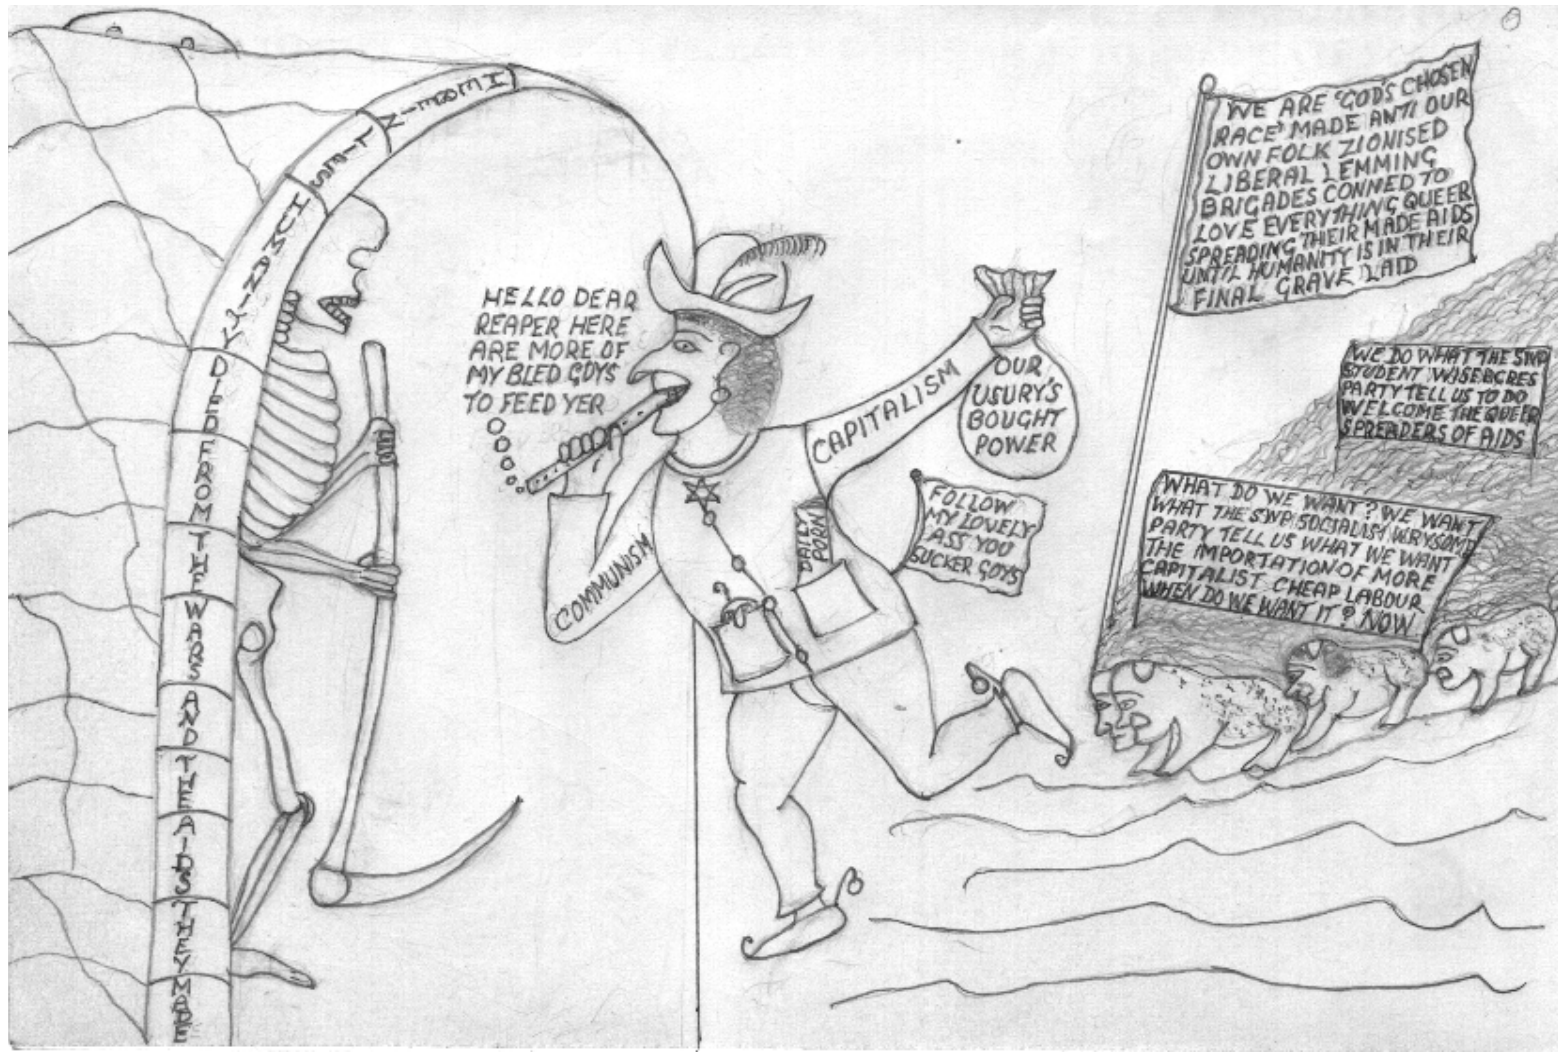 HUMANIRY
DIED
FROM
THE
WARS
AND
THE
AIDS
THEY
MADE
HELLO DEAR
REAPER HERE
ARE MORE OF
MY BLED GOYS
TO FEED YER
COMMUNISM
CAPITALISM
OUR
USURY'S
BOUGHT
POWER
DAILY
PORN
FOLLOW
MY LOVELY
ASS YOU
SUCKER GOYS
WE ARE 'GOD'S CHOSEN
RACE' MADE ANTI OUR
OWN FOLK ZIONISED
LIBERAL LEMMING
BRIGADES CONNED TO
LOVE EVERYTHING QUEER
SPREADING THEIR MADE AIDS
UNTIL HUMANITY IS IN THEIR
FINAL GRAVE LAID
WE DO WHAT THE SWP
STUDENT WISEACRES
PARTY TELL US TO DO
WELCOME THE QUEER
SPREADERS OF AIDS
WHAT DO WE WANT? WE WANT
WHAT THE SWP SOCIALISM
PARTY TELL US WHAT WE WANT
THE IMPORTATION OF MORE
CAPITALIST CHEAP LABOUR
WHEN DO WE WANT IT? NOW